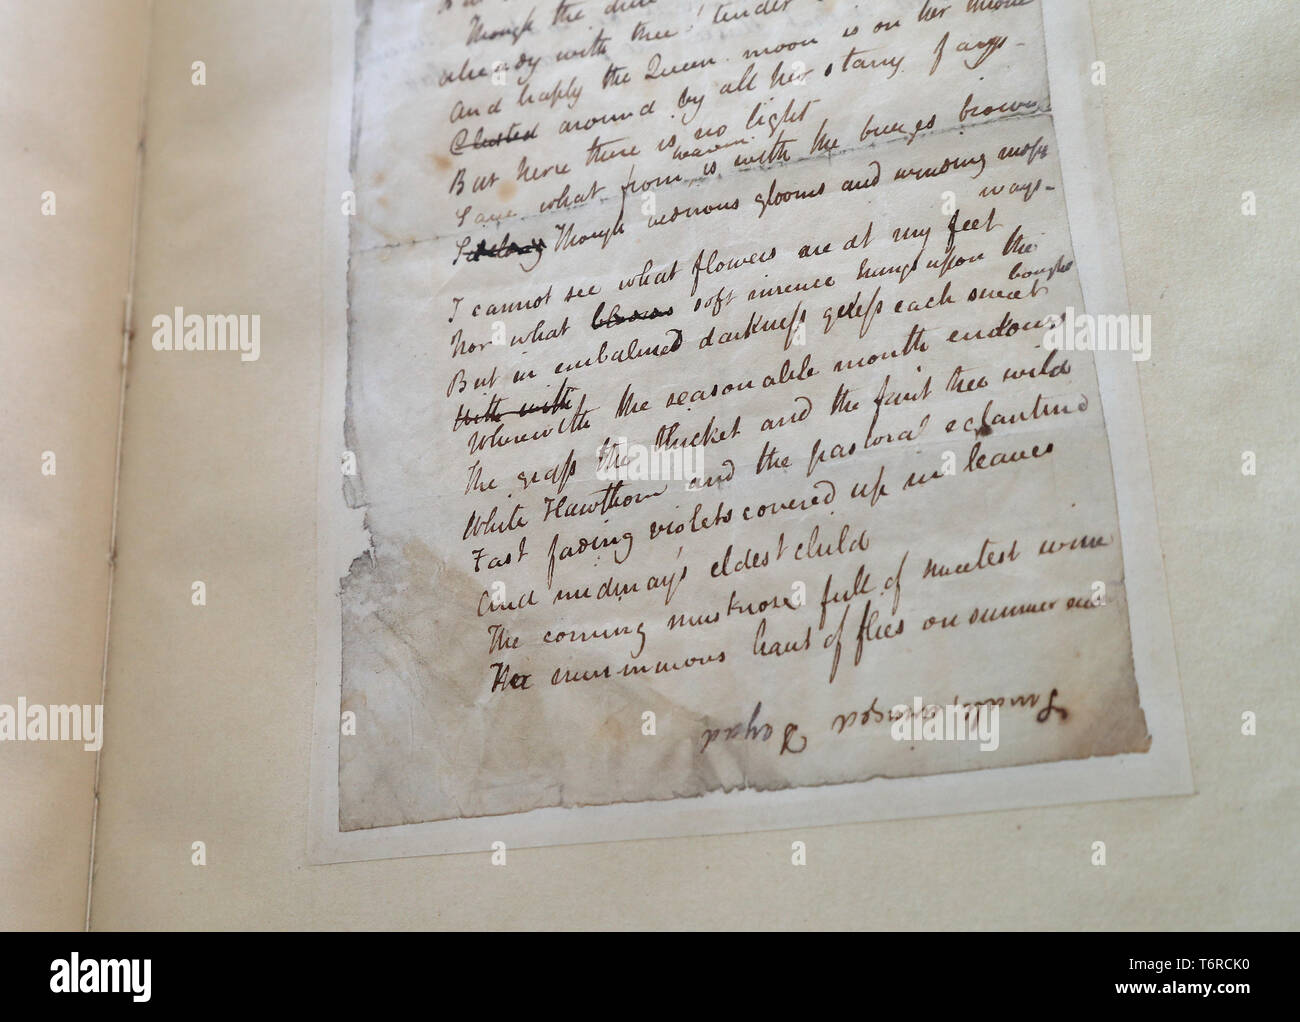 Though the dull
already with thee! tender
And haply the Queen-moon is on her throne
Clusted around by all her starry fays-
But here there is no light
heaven
Save what from is with the breezes blown
Though verdurous glooms and winding mossy
ways-
I cannot see what flowers are at my feet
Nor what blooms soft incense hangs upon the
boughs
But in embalmed darkness guess each sweet
With with
Wherewith the seasonable month endows
The grass the thicket and the fruit tree wild
White Hawthorn and the pastoral eglantine
Fast fading violets covered up in leaves
And midmay's eldest child
The coming muskrose full of sweetest wine
The murmurous haunt of flies on summer eves
Small, winged Dryad
alamy
alamy
Image ID: T6RCK0
www.alamy.com